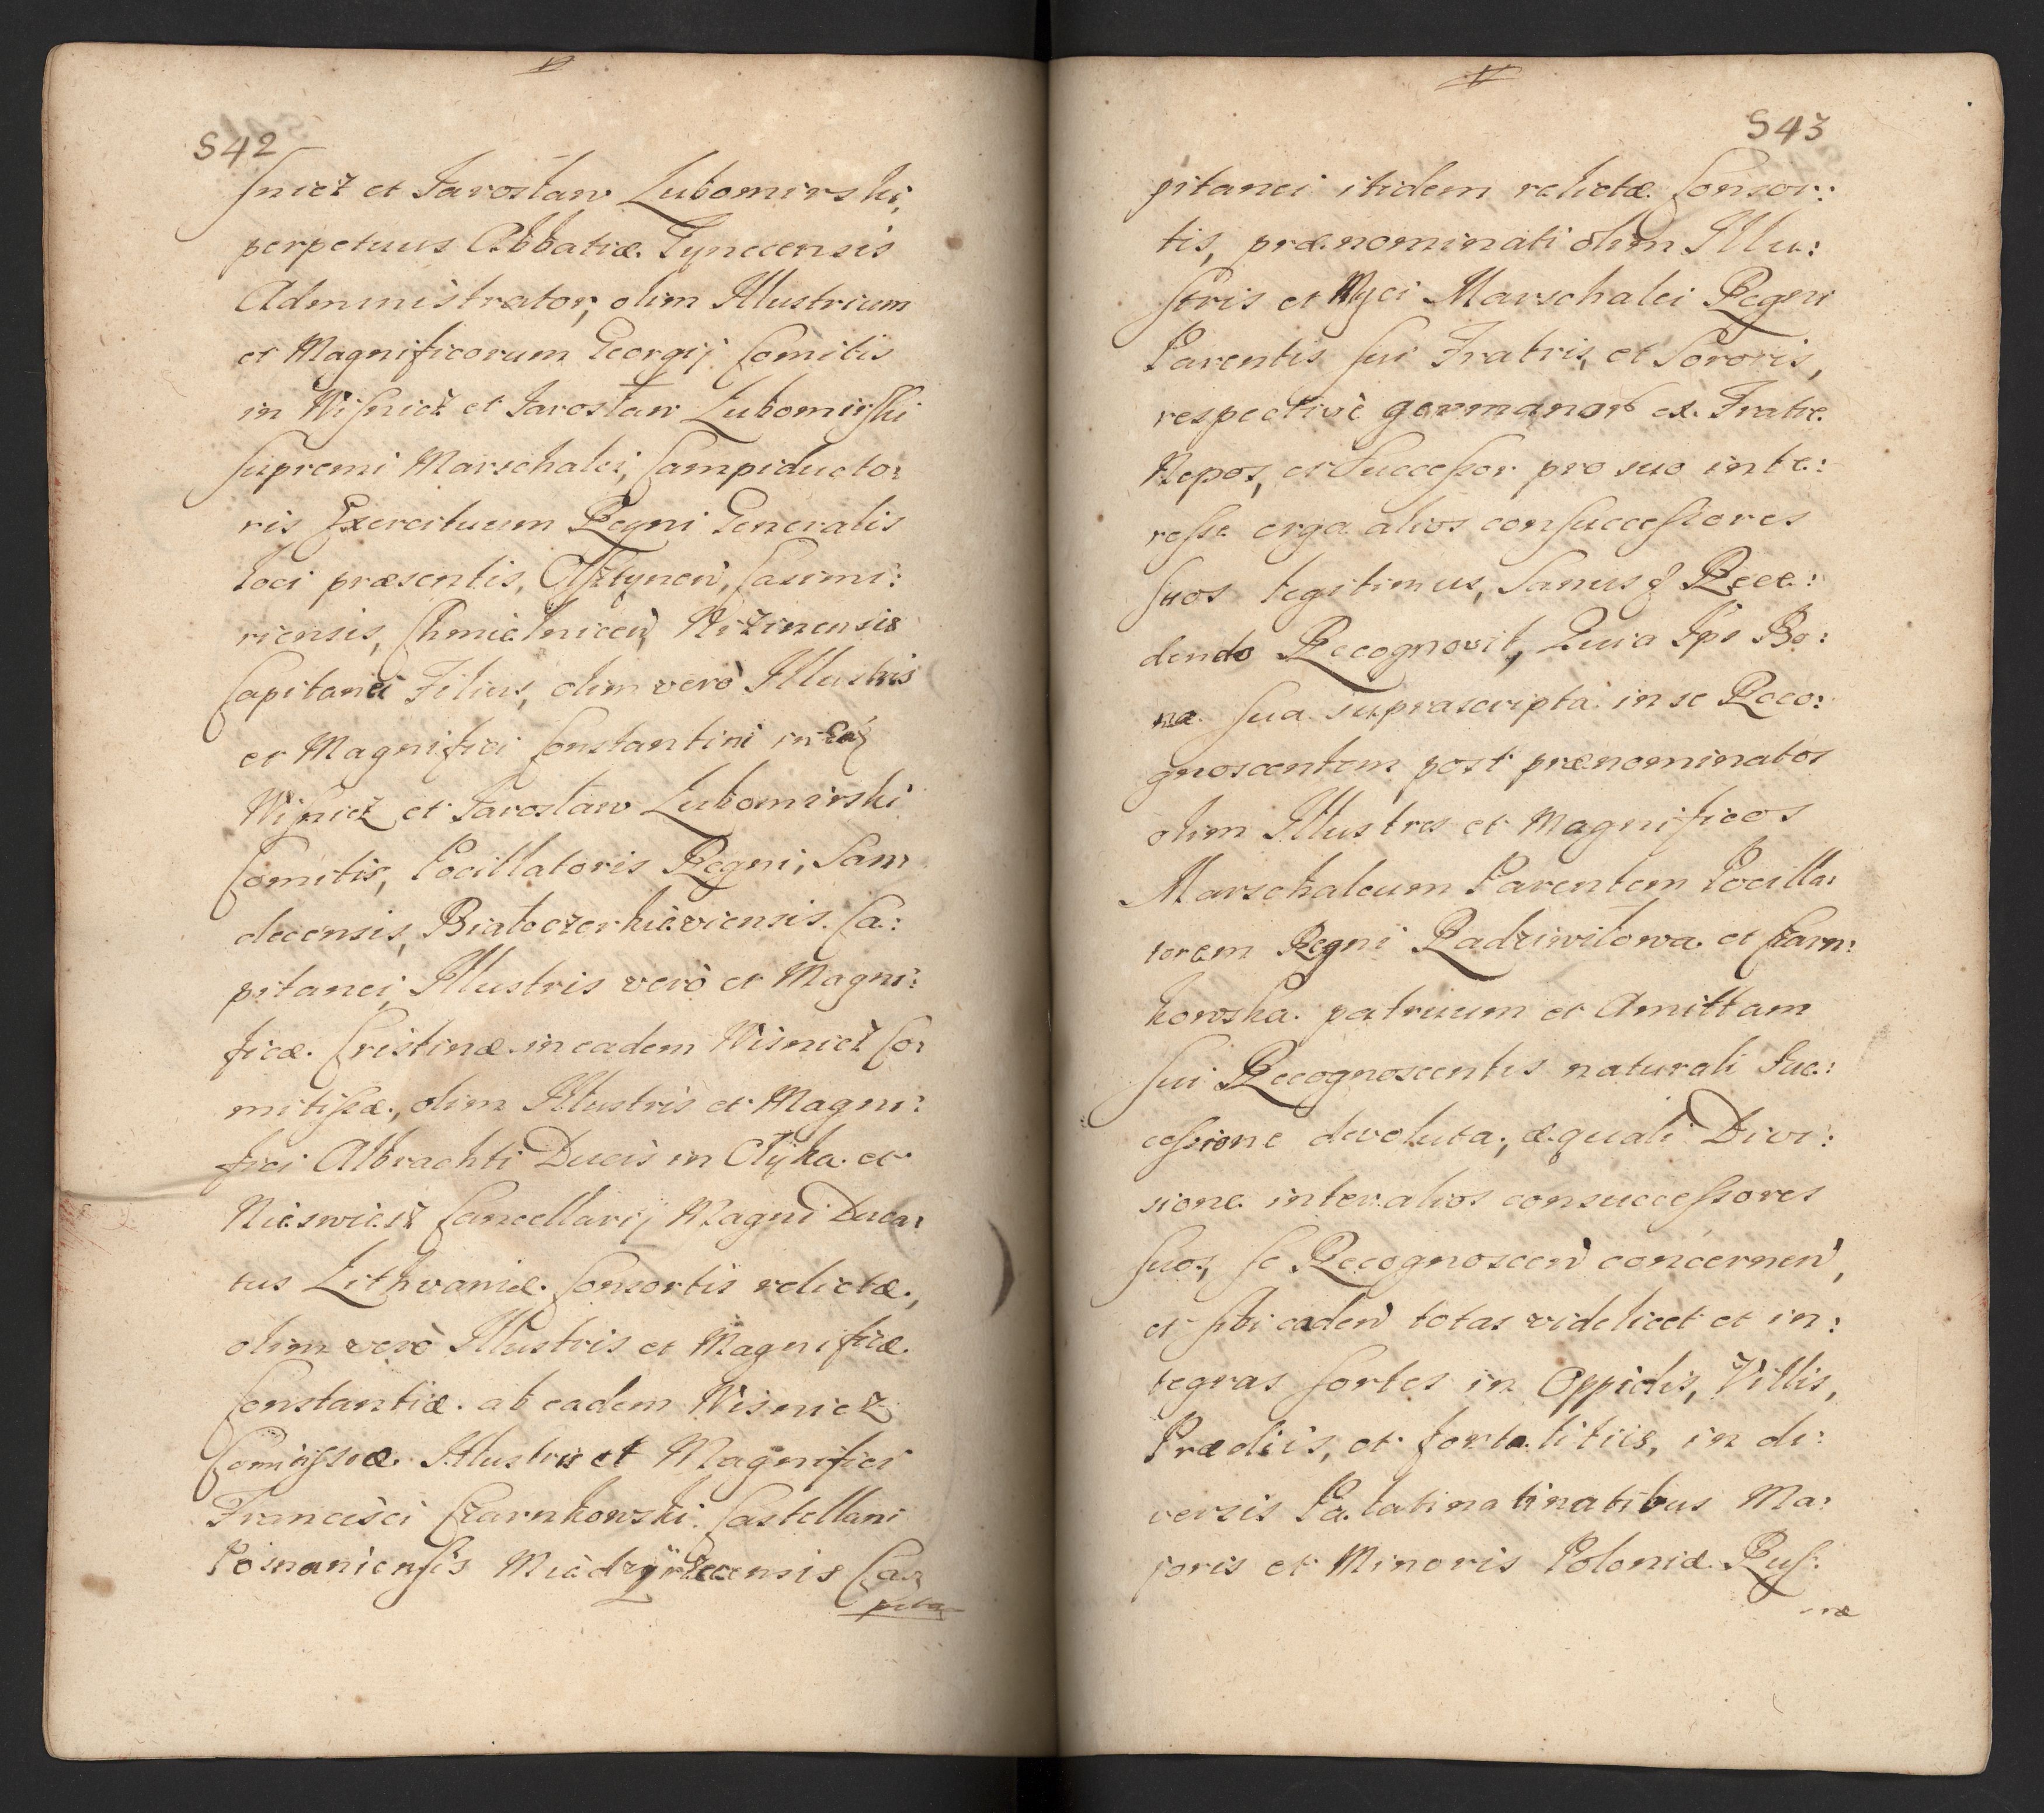 542
snicz et Jarosław Lubomirski,
perpetuus Abbatiæ Tynecensis
Administrator, olim Illustrium
et Magnificorum Georgij Comitis
in Wisnicz et Jarosław Lubomirski
supremi Marschalci, Campiducto:
ris Exercituum Regni Generalis
loci præsentis, Olsztynen, Casimi:
riensis, Chmielnicen, Nizinensis
Capitanei Filius, olim verò Illustris
et Magnifici Constantini in Ea:
Wisnicz et Jarosław Lubomirski
Comitis, Pocillatoris Regni, San:
decensis, Białocerkieviensis Ca:
pitanei, Illustris verò et Magni:
ficæ Cristinæ in eadem Wisnicz Co:
mitissæ, olim Illustris et Magni:
fici Albrachti Ducis in Ołyka et
Nieswiesz Cancellarij Magni Duca:
tus Lithvaniæ Consortis relictæ,
olim verò Illustris et Magnificæ
Constantiæ ab eadem Wisnicz
Comitissæ Illustris et Magnifici
Francisci Czarnkowski Castellani
Posnaniensis Miedzyrzecensis Ca:
pita
543
pitanei itidem relictæ Consor:
tis, prænominati olim Illu:
stris et Mgci Marschalci Regni
Parentis sui Fratris, et Sororis,
respectivè germanor ex Fratre
Nepos, et Successor pro suo inte:
resse erga alios consuccessores
suos legitimus, Sanus & Rece:
dendo Recognovit, Quia Ips Bo:
na sua suprascripta in se Reco:
gnoscentem post prænominatos
olim Illustres et Magnificos
Marschalcum Parentem Pocilla:
torem Regni Radziwiłowa et Czarn:
kowska patruum et Amittam
sui Recognoscentis naturali Suc:
cessione devoluta, æquali Divi:
sione inter alios consuccessores
suos, se Recognoscen concernen,
et sibi caden totas videlicet et in:
tegras sortes in Oppidis, Villis,
Prædiis, et fortalitiis, in di:
versis Palatinatinatibus Ma:
joris et Minoris Poloniæ Rus:
næ